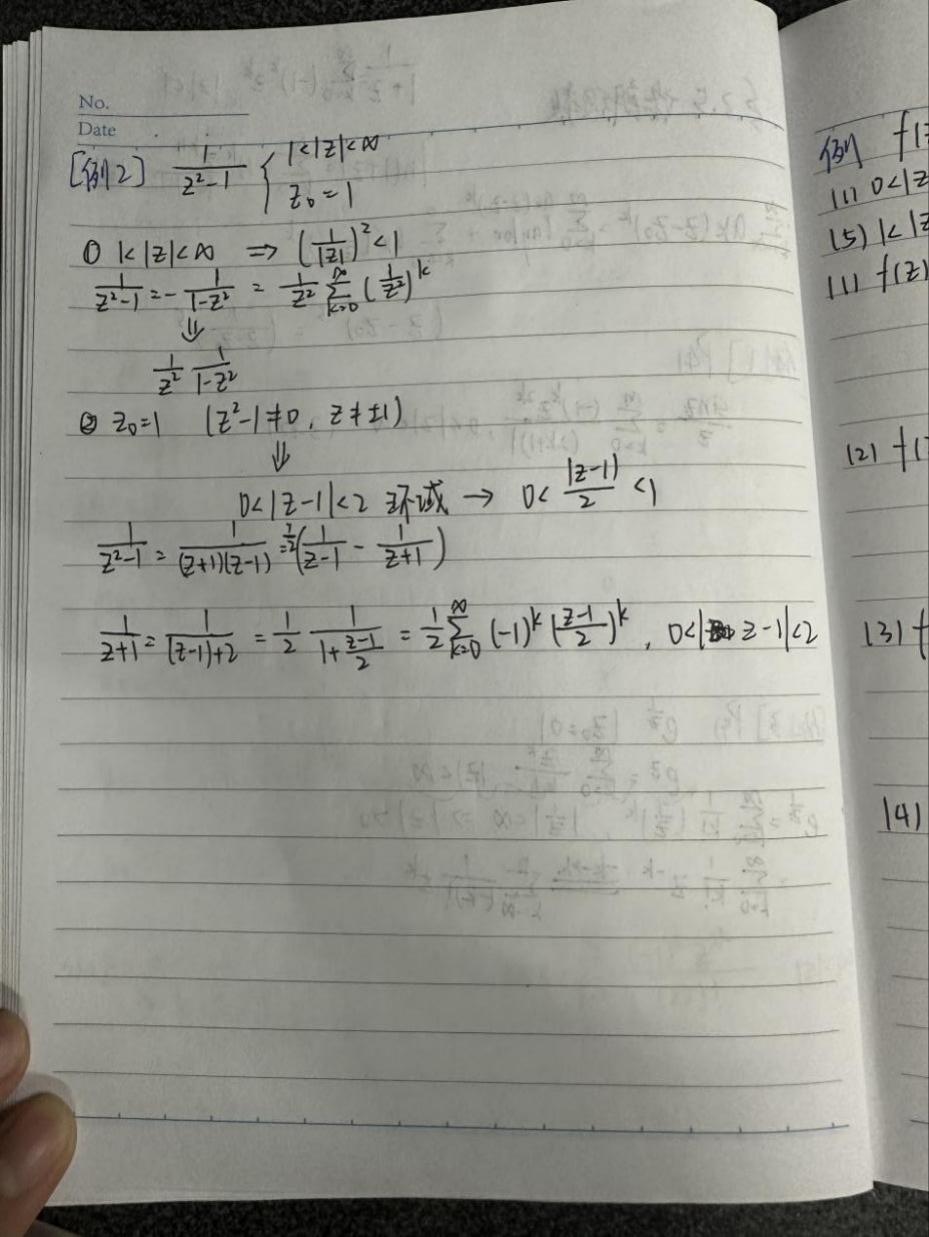 No.
Date
[例2] 1/(z²-1) { 1<|z|<∞
z₀=1
① 1<|z|<∞ ⇒ (1/|z|)²<1
1/(z²-1) = - 1/(1-z²) = 1/z² ∑_{k=0}^{∞} (1/z²)^k
⇓
1/z² 1/(1-z²)
② z₀=1 (z²-1≠0, z≠±1)
⇓
0<|z-1|<2 环域 → 0< |z-1|/2 <1
1/(z²-1) = 1/((z+1)(z-1)) = 1/2(1/(z-1) - 1/(z+1))
1/(z+1) = 1/((z-1)+2) = 1/2 1/(1+(z-1)/2) = 1/2 ∑_{k=0}^{∞} (-1)^k ((z-1)/2)^k , 0<|z-1|<2
例 f(z
(1) 0<|z
(5) 1<|z
(1) f(z)
(2) f(
(3) f
(4)